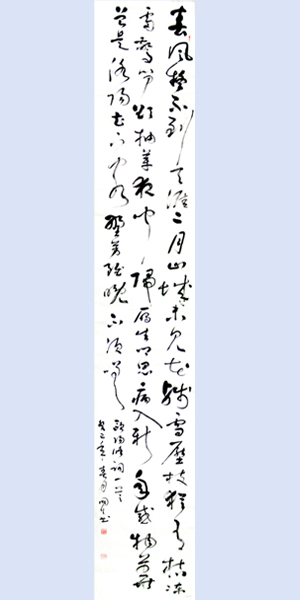 春风疑不到天涯二月山城未见花残雪压枝犹有桔冻
雷惊笋欲抽芽夜闻归雁生乡思病入新年感物华
曾是洛阳花下客野芳虽晚不须嗟
欧阳修词一首